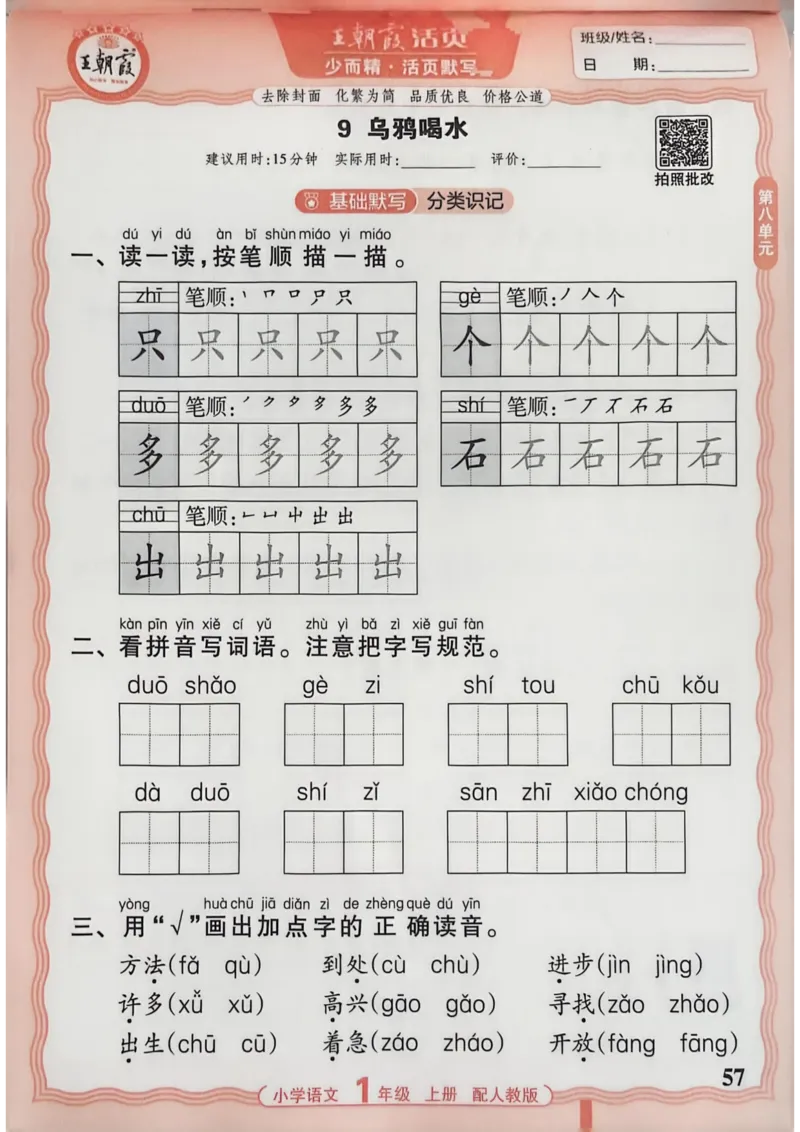 王朝霞
王朝霞活页
少而精·活页默写
班级/姓名:
日 期:
去除封面 化繁为简 品质优良 价格公道
9 乌鸦喝水
建议用时:15分钟 实际用时: 评价:
拍照批改
第八单元
基础默写 分类识记
dú yi dú àn bǐ shùn miáo yi miáo
一、读一读,按笔顺描一描。
zhī 笔顺:丨 冂 口 尸 只
只 只 只 只 只
gè 笔顺:丿 人 个
个 个 个 个 个
duō 笔顺:
多 多 多 多 多
shí 笔顺:
石 石 石 石 石
chū 笔顺:
出 出 出 出 出
kàn pīn yīn xiě cí yǔ zhù yì bǎ zì xiě guī fàn
二、看拼音写词语。注意把字写规范。
duō shǎo gè zi shí tou chū kǒu
dà duō shí zǐ sān zhī xiǎo chóng
yòng huà chū jiā diǎn zì de zhèng què dú yīn
三、用“√”画出加点字的正确读音。
方法(fǎ qù) 到处(cù chù) 进步(jìn jìng)
许多(xǚ xǔ) 高兴(gāo gǎo) 寻找(zǎo zhǎo)
出生(chū cū) 着急(záo zháo) 开放(fàng fāng)
57
小学语文 1年级 上册 配人教版